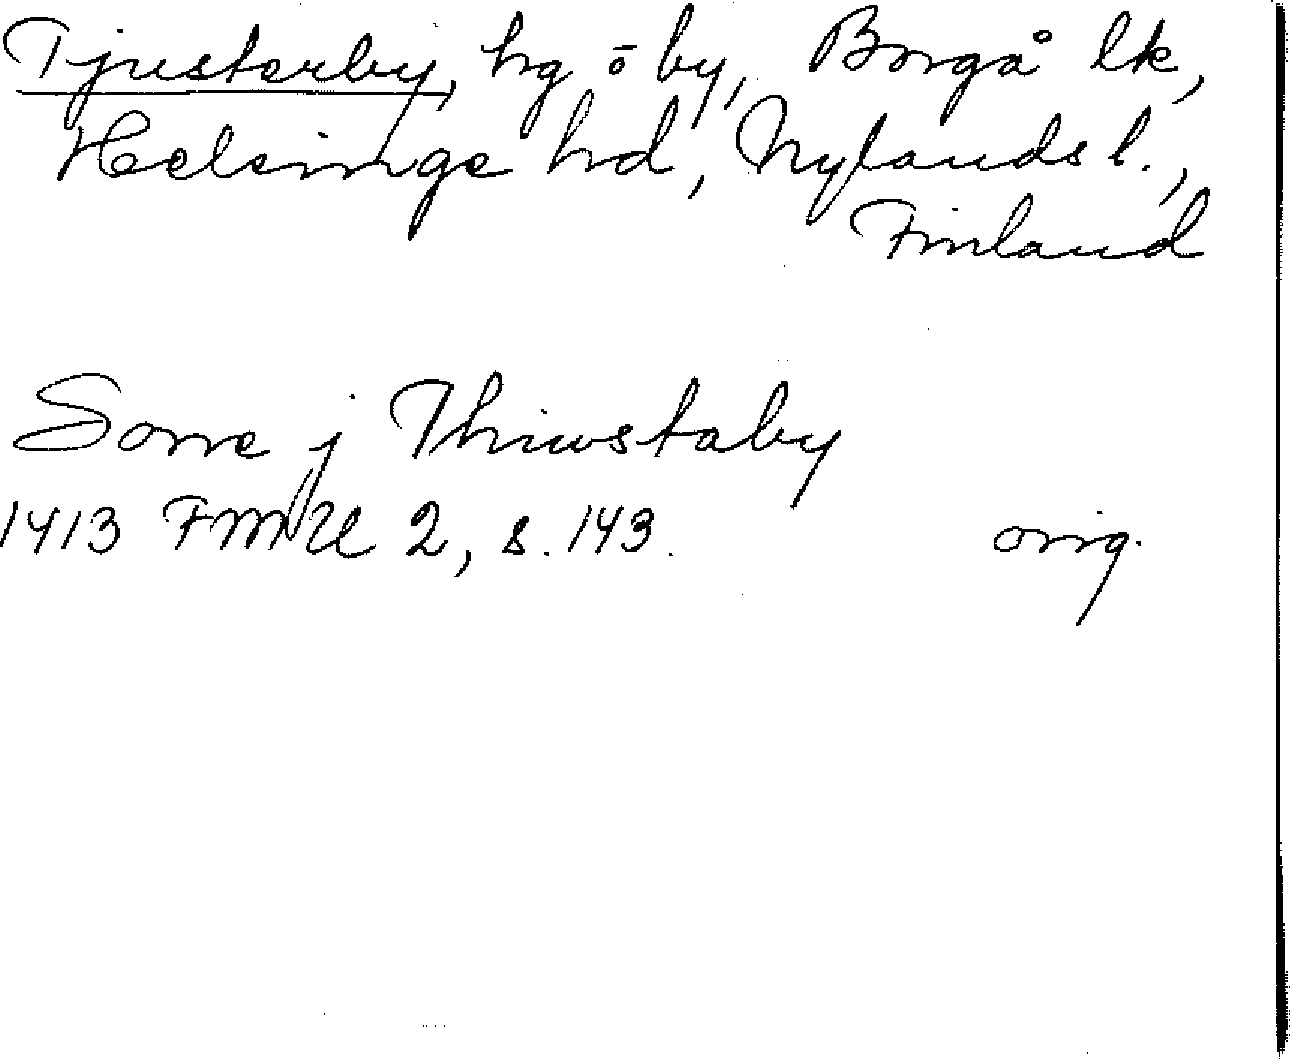 Tjusterby, hg o by, Borgå lk,
Helsinge hd, Nylands l.,
Finland
Sone j Thiwstaby
1413 FMU 2, s. 143.
orig.